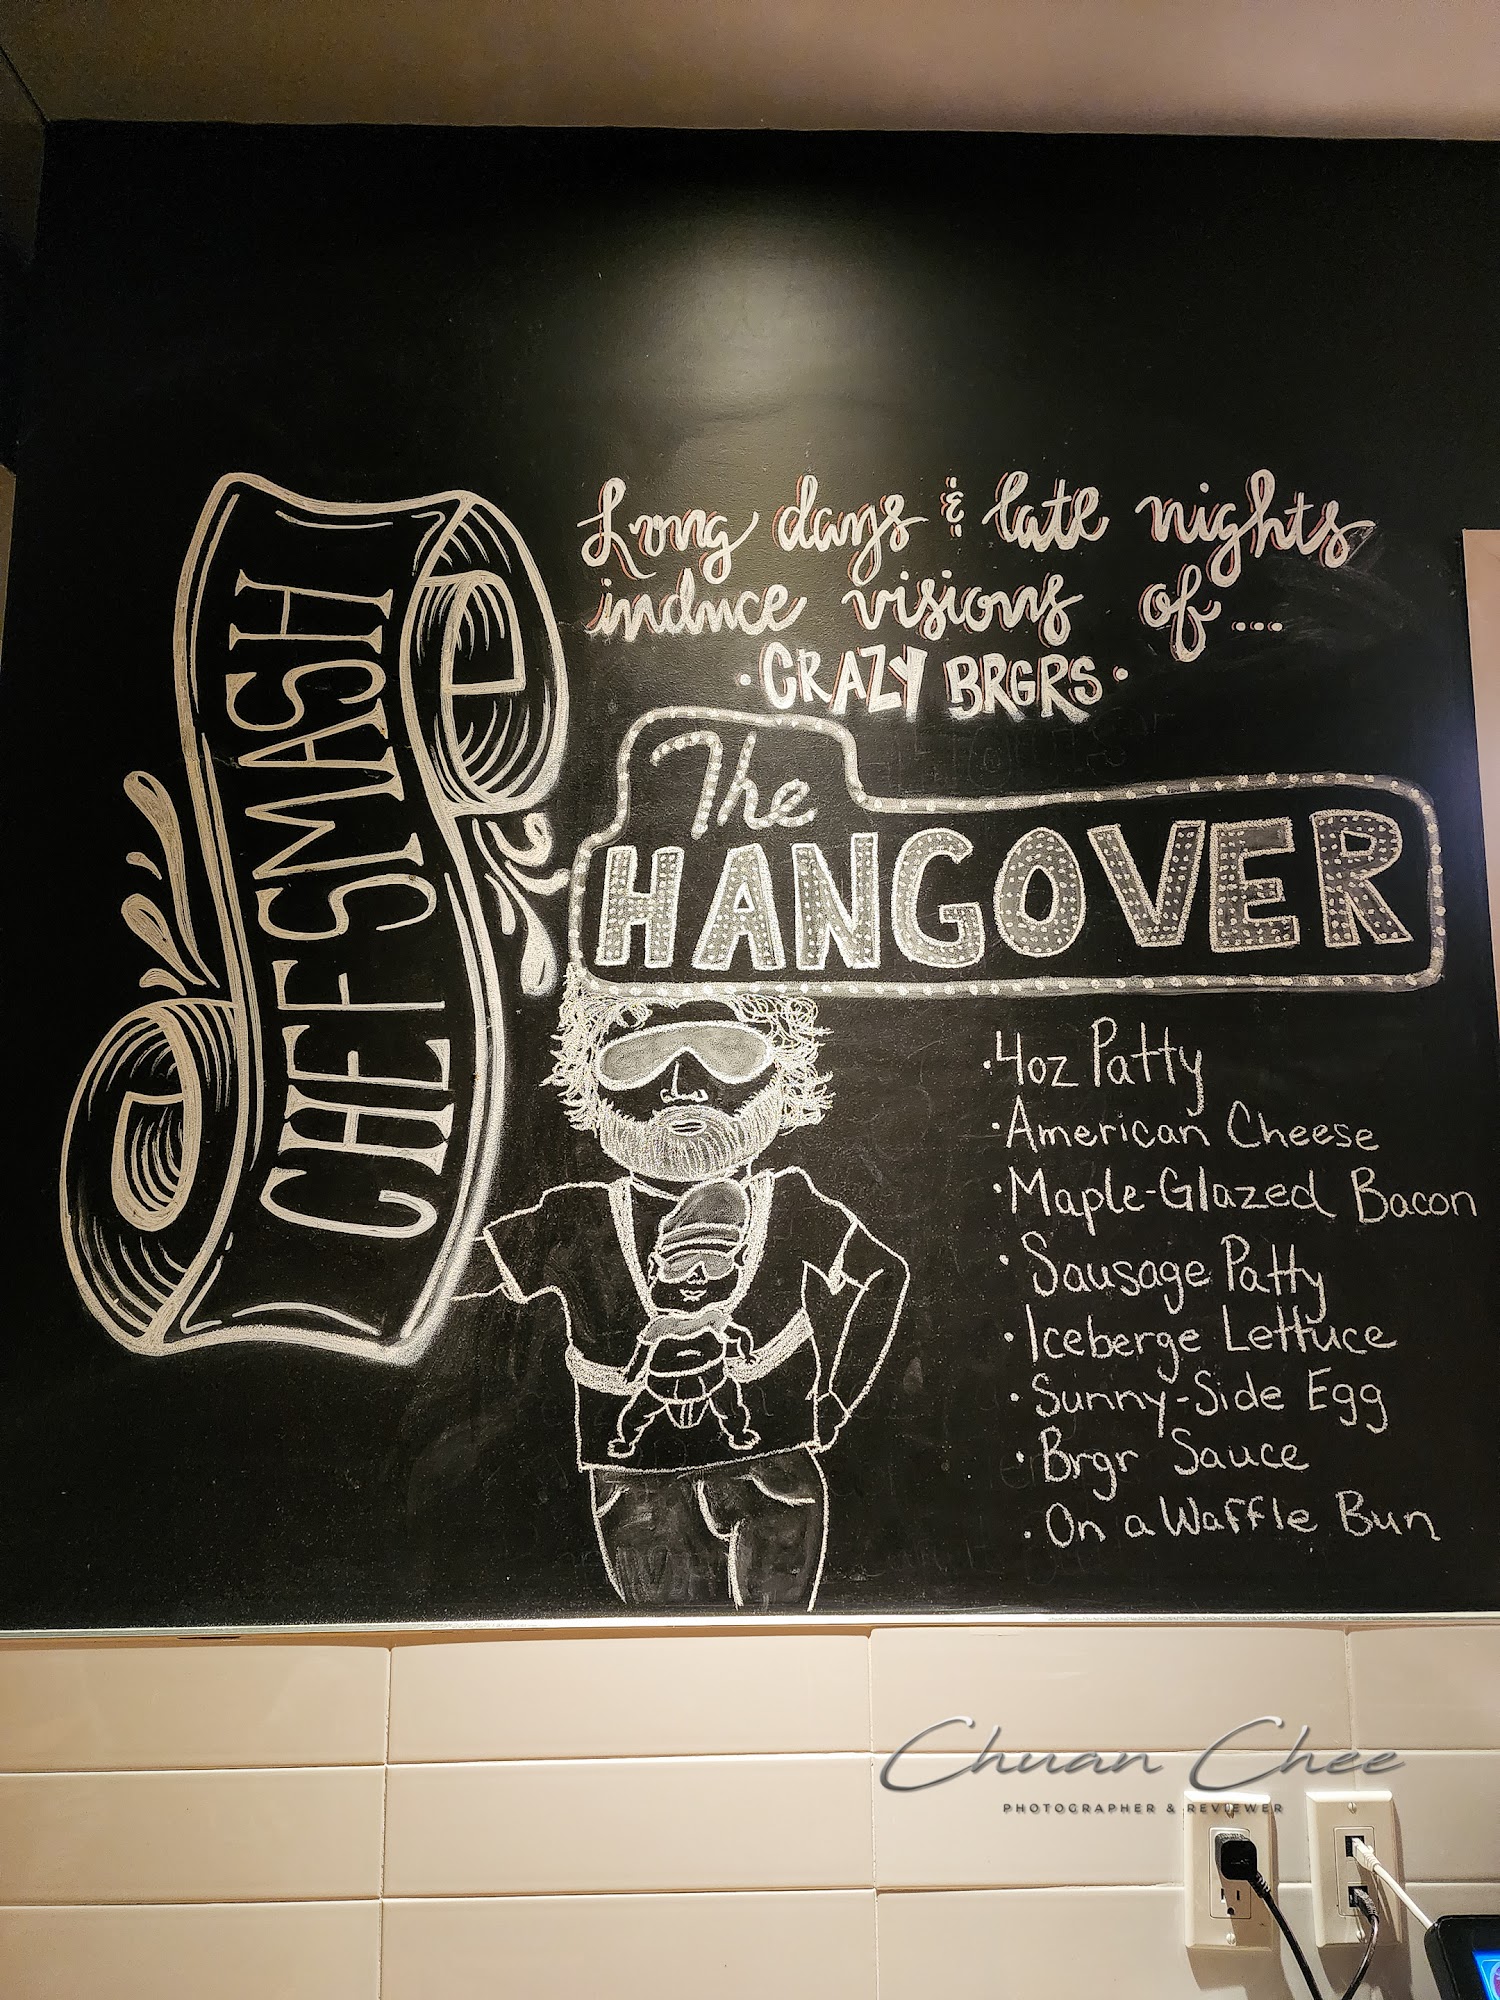 CHEF SMASH
Long days & late nights
induce visions of...
·CRAZY BRGRS·
The
HANGOVER
·4oz Patty
·American Cheese
·Maple-Glazed Bacon
·Sausage Patty
·Iceberge Lettuce
·Sunny-Side Egg
·Brgr Sauce
·On a Waffle Bun
Chuan Chee
PHOTOGRAPHER & REVIEWER